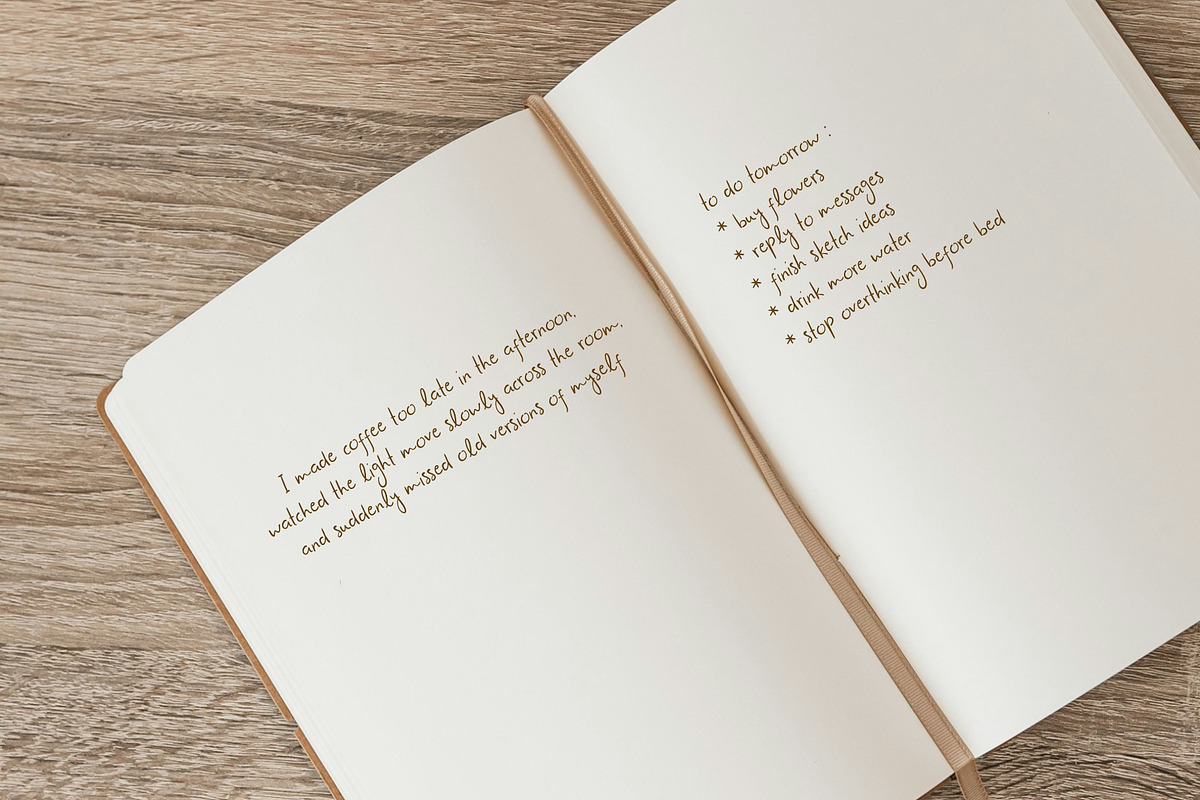 I made coffee too late in the afternoon,
watched the light move slowly across the room,
and suddenly missed old versions of myself
to do tomorrow :
* buy flowers
* reply to messages
* finish sketch ideas
* drink more water
* stop overthinking before bed